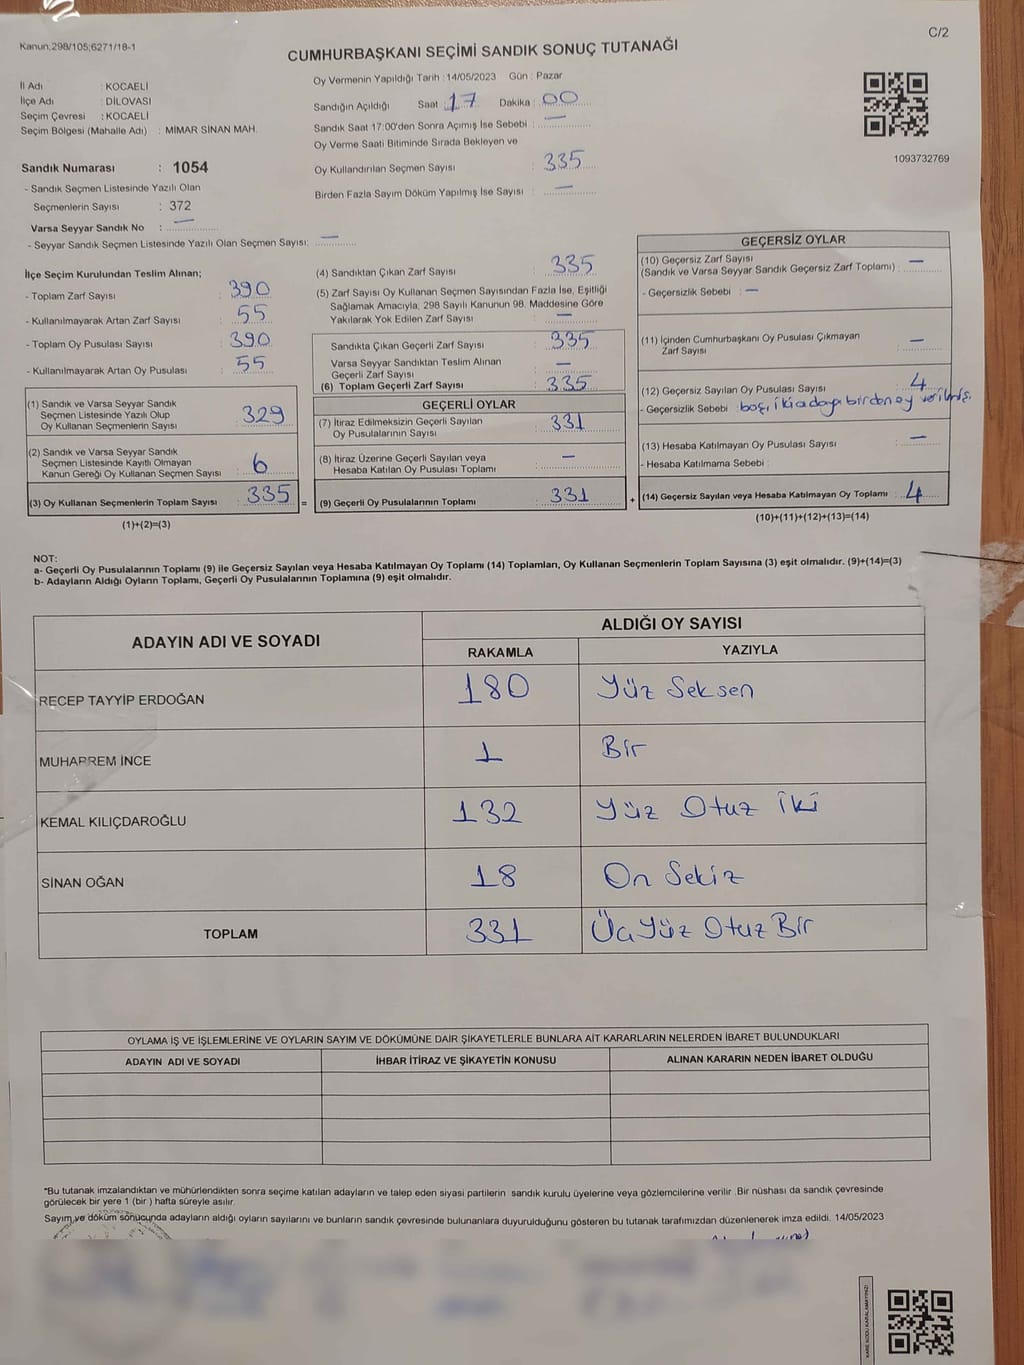 Kanun;298/105;6271/18-1
C/2
CUMHURBAŞKANI SEÇİMİ SANDIK SONUÇ TUTANAĞI
İl Adı : KOCAELİ
İlçe Adı : DİLOVASI
Seçim Çevresi : KOCAELİ
Seçim Bölgesi (Mahalle Adı) : MİMAR SİNAN MAH.
Sandık Numarası : 1054
- Sandık Seçmen Listesinde Yazılı Olan
Seçmenlerin Sayısı : 372
Varsa Seyyar Sandık No : —
- Seyyar Sandık Seçmen Listesinde Yazılı Olan Seçmen Sayısı: —
Oy Vermenin Yapıldığı Tarih : 14/05/2023 Gün : Pazar
Sandığın Açıldığı Saat : 17 Dakika : 00
Sandık Saat 17:00'den Sonra Açımış İse Sebebi : —
Oy Verme Saati Bitiminde Sırada Bekleyen ve
Oy Kullandırılan Seçmen Sayısı : 335
Birden Fazla Sayım Döküm Yapılmış İse Sayısı : —
1093732769
İlçe Seçim Kurulundan Teslim Alınan;
- Toplam Zarf Sayısı : 390
- Kullanılmayarak Artan Zarf Sayısı : 55
- Toplam Oy Pusulası Sayısı : 390
- Kullanılmayarak Artan Oy Pusulası : 55
(1) Sandık ve Varsa Seyyar Sandık
Seçmen Listesinde Yazılı Olup
Oy Kullanan Seçmenlerin Sayısı : 329
(2) Sandık ve Varsa Seyyar Sandık
Seçmen Listesinde Kayıtlı Olmayan
Kanun Gereği Oy Kullanan Seçmen Sayısı : 6
(3) Oy Kullanan Seçmenlerin Toplam Sayısı : 335 =
(1)+(2)=(3)
(4) Sandıktan Çıkan Zarf Sayısı : 335
(5) Zarf Sayısı Oy Kullanan Seçmen Sayısından Fazla İse, Eşitliği
Sağlamak Amacıyla, 298 Sayılı Kanunun 98. Maddesine Göre
Yakılarak Yok Edilen Zarf Sayısı : —
Sandıkta Çıkan Geçerli Zarf Sayısı : 335
Varsa Seyyar Sandıktan Teslim Alınan
Geçerli Zarf Sayısı : —
(6) Toplam Geçerli Zarf Sayısı : 335
GEÇERLİ OYLAR
(7) İtiraz Edilmeksizin Geçerli Sayılan
Oy Pusulalarının Sayısı : 331
(8) İtiraz Üzerine Geçerli Sayılan veya
Hesaba Katılan Oy Pusulası Toplamı : —
(9) Geçerli Oy Pusulalarının Toplamı : 331 +
GEÇERSİZ OYLAR
(10) Geçersiz Zarf Sayısı
(Sandık ve Varsa Seyyar Sandık Geçersiz Zarf Toplamı) : —
- Geçersizlik Sebebi : —
(11) İçinden Cumhurbaşkanı Oy Pusulası Çıkmayan
Zarf Sayısı : —
(12) Geçersiz Sayılan Oy Pusulası Sayısı : 4
- Geçersizlik Sebebi : boş, iki adaya birden oy verilmiş.
(13) Hesaba Katılmayan Oy Pusulası Sayısı : —
- Hesaba Katılmama Sebebi :
(14) Geçersiz Sayılan veya Hesaba Katılmayan Oy Toplamı : 4
(10)+(11)+(12)+(13)=(14)
NOT:
a- Geçerli Oy Pusulalarının Toplamı (9) ile Geçersiz Sayılan veya Hesaba Katılmayan Oy Toplamı (14) Toplamları, Oy Kullanan Seçmenlerin Toplam Sayısına (3) eşit olmalıdır. (9)+(14)=(3)
b- Adayların Aldığı Oyların Toplamı, Geçerli Oy Pusulalarının Toplamına (9) eşit olmalıdır.
ADAYIN ADI VE SOYADI
ALDIĞI OY SAYISI
RAKAMLA YAZIYLA
RECEP TAYYİP ERDOĞAN 180 Yüz Seksen
MUHARREM İNCE 1 Bir
KEMAL KILIÇDAROĞLU 132 Yüz Otuz İki
SİNAN OĞAN 18 On Sekiz
TOPLAM 331 Üç Yüz Otuz Bir
OYLAMA İŞ VE İŞLEMLERİNE VE OYLARIN SAYIM VE DÖKÜMÜNE DAİR ŞİKAYETLERLE BUNLARA AİT KARARLARIN NELERDEN İBARET BULUNDUKLARI
ADAYIN ADI VE SOYADI İHBAR İTİRAZ VE ŞİKAYETİN KONUSU ALINAN KARARIN NEDEN İBARET OLDUĞU
"Bu tutanak imzalandıktan ve mühürlendikten sonra seçime katılan adayların ve talep eden siyasi partilerin sandık kurulu üyelerine veya gözlemcilerine verilir .Bir nüshası da sandık çevresinde
görülecek bir yere 1 (bir ) hafta süreyle asılır.
Sayım ve döküm sonucunda adayların aldığı oyların sayılarını ve bunların sandık çevresinde bulunanlara duyurulduğunu gösteren bu tutanak tarafımızdan düzenlenerek imza edildi. 14/05/2023
KARE KODU KARALAMAYINIZ!